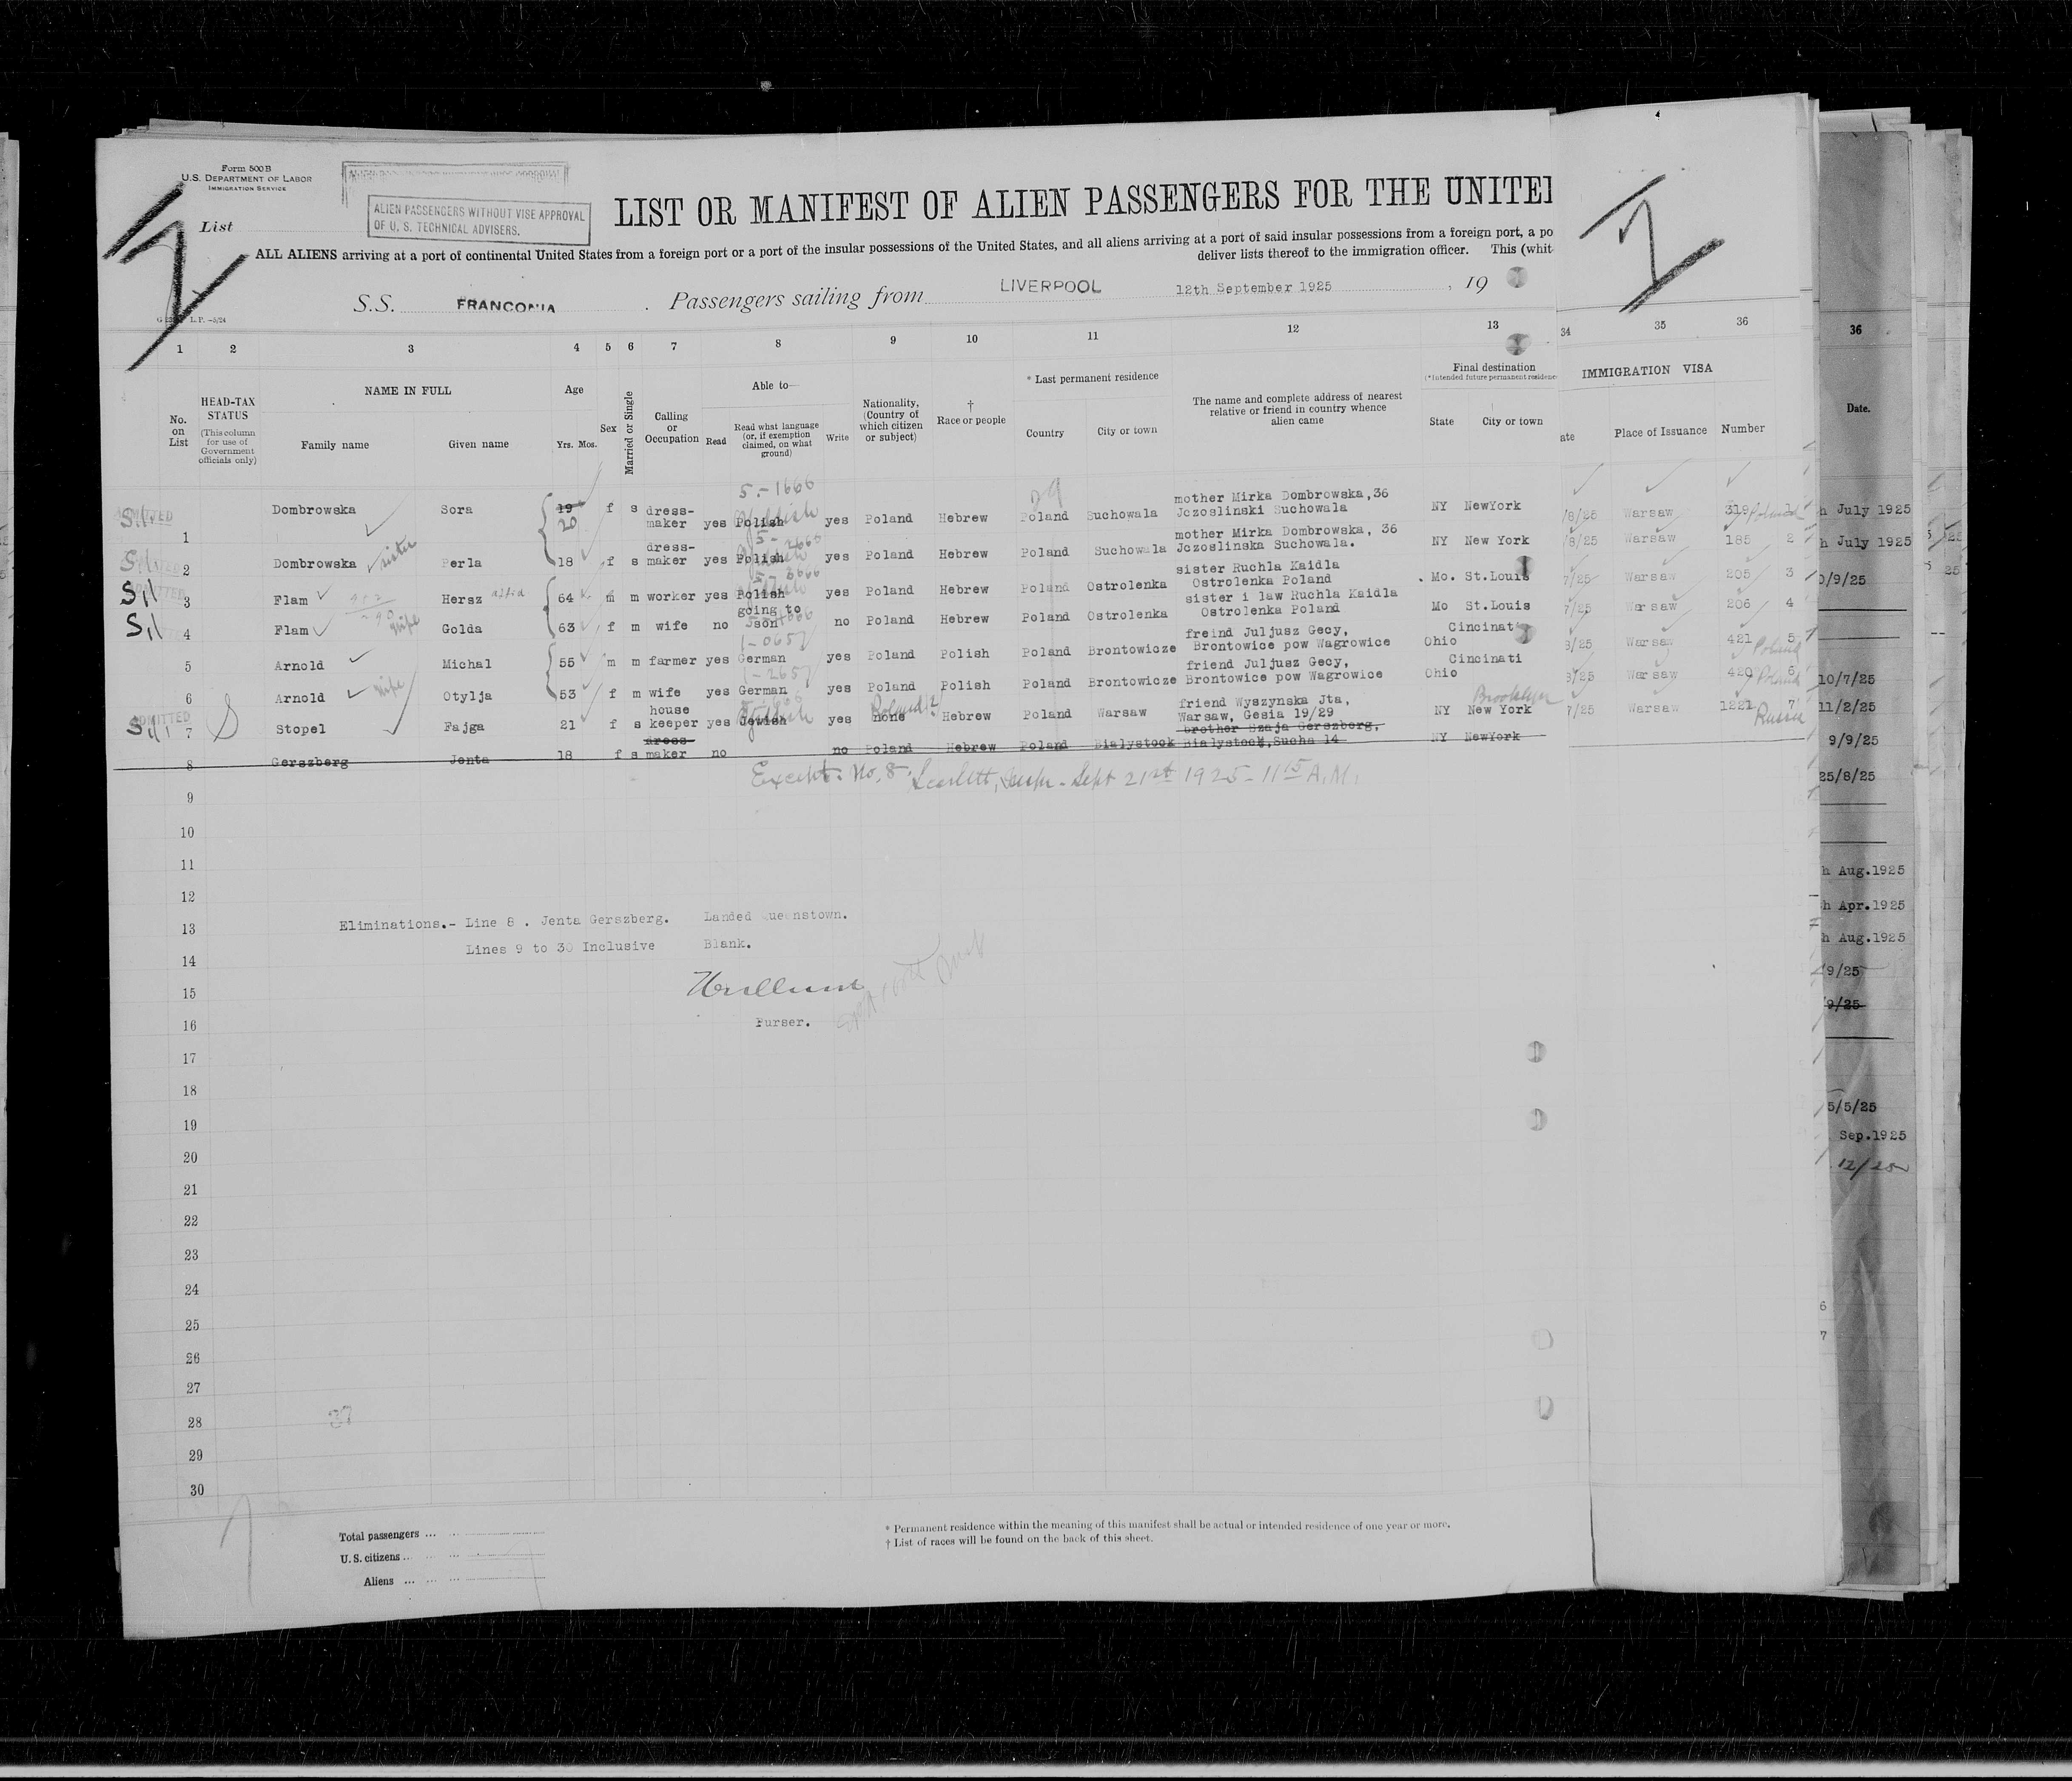 Form 500 B
U.S. DEPARTMENT OF LABOR
IMMIGRATION SERVICE
List
ALIEN PASSENGERS WITHOUT VISE APPROVAL
OF U. S. TECHNICAL ADVISERS.
LIST OR MANIFEST OF ALIEN PASSENGERS FOR THE UNITED
ALL ALIENS arriving at a port of continental United States from a foreign port or a port of the insular possessions of the United States, and all aliens arriving at a port of said insular possessions from a foreign port, a po
deliver lists thereof to the immigration officer. This (whit
S.S. FRANCONIA . Passengers sailing from LIVERPOOL 12th September 1925 , 19
1 2 3 4 5 6 7 8 9 10 11 12 13 34 35 36
No. on List
HEAD-TAX STATUS
(This column for use of Government officials only)
NAME IN FULL
Family name Given name
Age
Yrs. Mos.
Sex
Married or Single
Calling or Occupation
Able to—
Read
Read what language (or, if exemption claimed, on what ground)
Write
Nationality, (Country of which citizen or subject)
† Race or people
* Last permanent residence
Country City or town
The name and complete address of nearest relative or friend in country whence alien came
Final destination
(*Intended future permanent residence
State City or town
IMMIGRATION VISA
ate Place of Issuance Number
36
Date.
5.-1666
1 Dombrowska Sora 19 20 f s dress-maker yes Polish yes Poland Hebrew Poland Suchowala mother Mirka Dombrowska,36 Jczoslinski Suchowala NY NewYork /8/25 Warsaw 319 1
2 Dombrowska sister Perla 18 f s dress-maker yes Polish yes Poland Hebrew Poland Suchowala mother Mirka Dombrowska, 36 Jczoslinska Suchowala. NY New York /8/25 Warsaw 185 2
3 Flam Hersz 64 m m worker yes Polish yes Poland Hebrew Poland Ostrolenka sister Ruchla Kaidla Ostrolenka Poland Mo. St.Louis 7/25 Warsaw 205 3
4 Flam wife Golda 63 f m wife no going to son no Poland Hebrew Poland Ostrolenka sister i law Ruchla Kaidla Ostrolenka Poland Mo St.Louis 7/25 Warsaw 206 4
1-0657
5 Arnold Michal 55 m m farmer yes German yes Poland Polish Poland Brontowicze freind Juljusz Gecy, Brontowice pow Wagrowice Ohio Cincinati 8/25 Warsaw 421 5 Poland
1-2657
6 Arnold wife Otylja 53 f m wife yes German yes Poland Polish Poland Brontowicze friend Juljusz Gecy, Brontowice pow Wagrowice Ohio Cincinati 8/25 Warsaw 420 6 Poland
7 Stopel Fajga 21 f s house keeper yes Jewish yes none Poland Hebrew Poland Warsaw friend Wyszynska Jta, Warsaw, Gesia 19/29 NY New York Brooklyn 7/25 Warsaw 1221 7 Russia
8 Gerszberg Jenta 18 f s dress-maker no no Poland Hebrew Poland Bialystock brother Szaja Gerszberg, Bialystock,Sucha 14 NY NewYork
Except: No. 8. Scarlett, Insp. - Sept 21st 1925 - 11 15 A.M.
9
10
11
12
13 Eliminations.- Line 8 . Jenta Gerszberg. Landed Queenstown.
Lines 9 to 30 Inclusive Blank.
14
15
16 Purser.
17
18
19
20
21
22
23
24
25
26
27
28 37
29
30
Total passengers ...
U.S. citizens ...
Aliens ...
* Permanent residence within the meaning of this manifest shall be actual or intended residence of one year or more.
† List of races will be found on the back of this sheet.
h July 1925
h July 1925
0/9/25
10/7/25
11/2/25
9/9/25
25/8/25
h Aug.1925
h Apr.1925
h Aug.1925
/9/25
9/25
5/5/25
Sep.1925
12/25
6
7